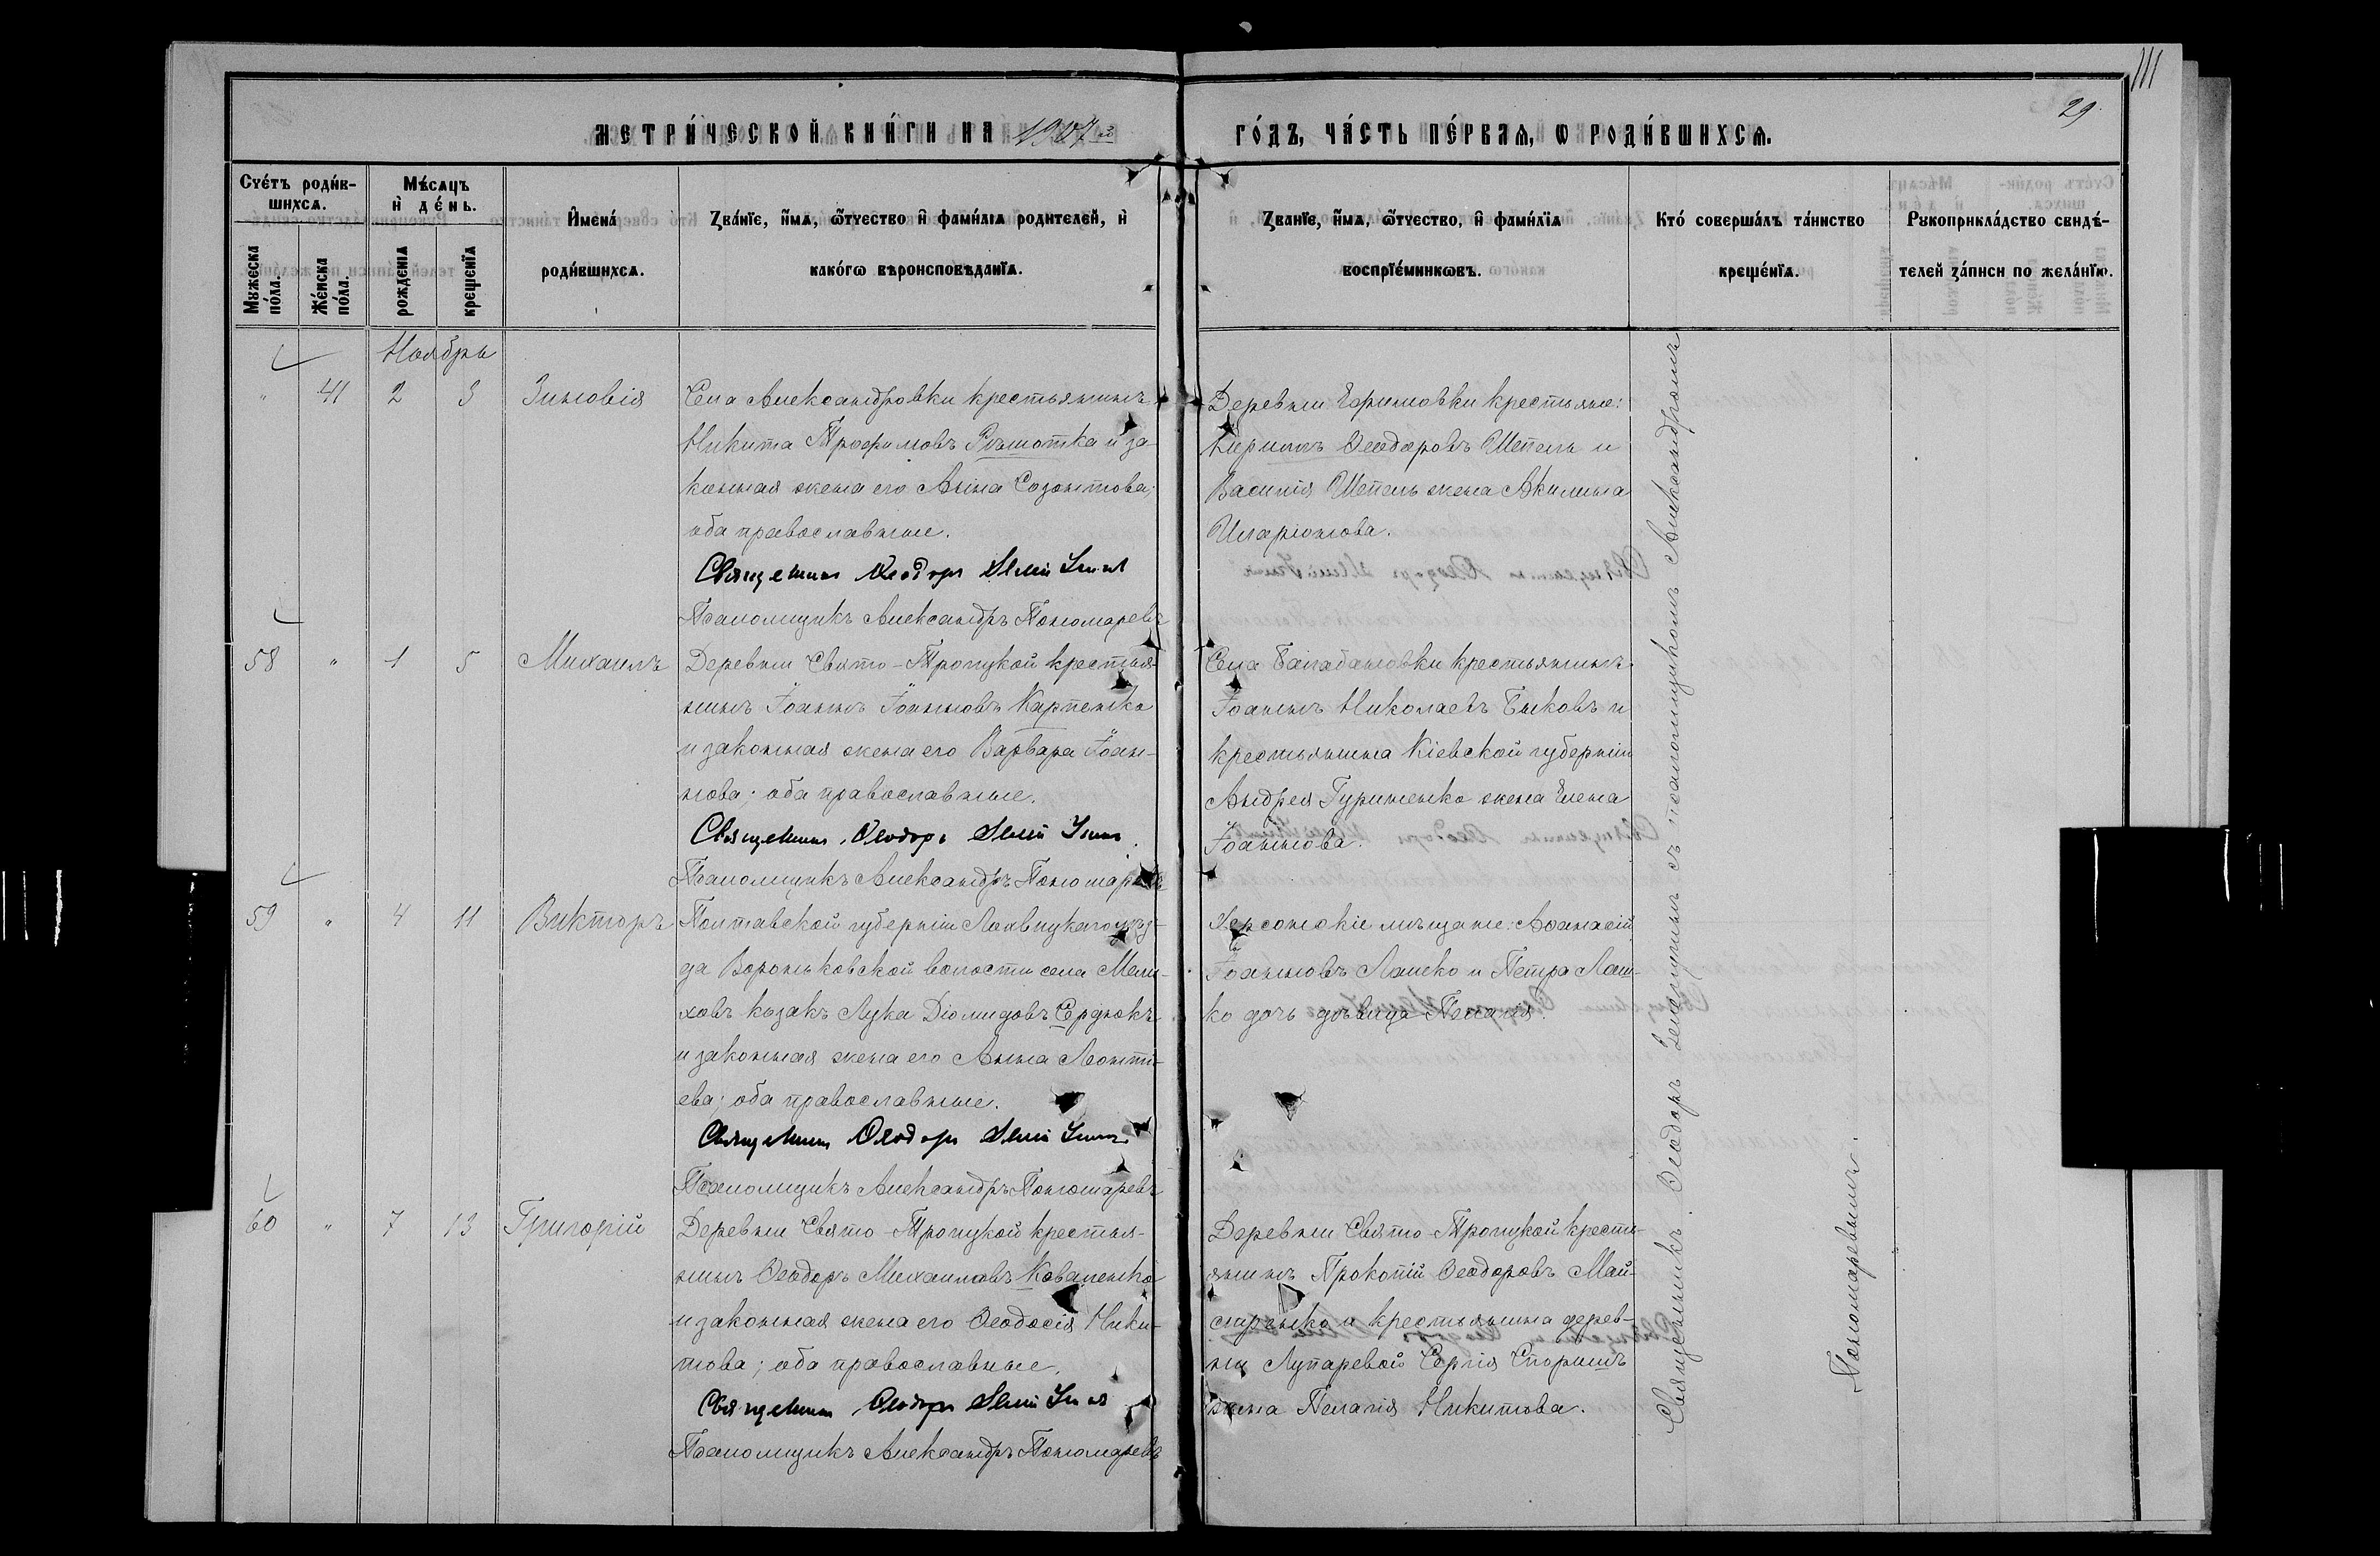 111
29.
МЕТРИ́ЧЕСКОЙ КНИ́ГИ НА 1907й
ГО́ДЪ, ЧА́СТЬ ПЕ́РВАѦ, Ѡ РОДИ́ВШИХСѦ.
Сче́тъ роди́в-
шихсѧ.
Мѣ́сѧцъ
и҆ де́нь.
Мꙋжеска по́ла.
Же́нска по́ла.
рожденїѧ
крещенїѧ
И҆мена́
роди́вшихсѧ.
Зва́нїе, и҆́мѧ, ѻ҆́тчество и҆ фами́лїѧ родителей, и҆
како́гѡ вѣроисповѣданїѧ.
Зва́нїе, и҆́мѧ, ѻ҆́тчество, и҆ фами́лїѧ
воспрїе́мникѡвъ.
Кто́ соверша́лъ та́инство
креще́нїѧ.
Рꙋкоприкла́дство свидѣ́-
телей за́писи по жела́нїю.
Ноябрь
" 41 2 3 Зиновія
Села Александровки крестьянинъ
Никита Трофимовъ Рѣшотка и за-
конная жена его Анна Созонтова;
оба православные.
Священникъ Ѳеодоръ
Псаломщикъ Александръ Пономаревъ
Деревни Ефимовки крестьяне:
Ѳеодоровъ Шепель и
Василія Шепель жена Акилина
Иларіонова.
58 " 1 5 Михаилъ
Деревни Свято-Троицкой крестья-
нинъ Іоаннъ Іоанновъ Карпенко
и законная жена его Варвара Іоан-
нова; оба православные.
Священникъ Ѳеодоръ
Псаломщикъ Александръ Пономаревъ
Села Балабановки крестьянинъ
Іоаннъ Николаевъ Быковъ и
крестьянина Кіевской губерніи
Андрея Гуриненко жена Елена
Іоаннова.
59 " 4 11 Викторъ
Полтавской губерніи Лохвицкаго уѣз-
да Вороньковской волости села Мели-
ховъ козакъ Лука Діомидовъ Сердюкъ
и законная жена его Анна Леонті-
ева; оба православные.
Священникъ Ѳеодоръ
Псаломщикъ Александръ Пономаревъ
Херсонскіе мѣщане: Аѳанасій
Іоанновъ Лашко и Петра Лаш-
ко дочь дѣвица Пелагія.
60 " 7 13 Григорій
Деревни Свято-Троицкой крестья-
нинъ Ѳеодоръ Михаиловъ Коваленко
и законная жена его Ѳеодосія Ники-
това; оба православные.
Священникъ Ѳеодоръ
Псаломщикъ Александръ Пономаревъ
Деревни Свято-Троицкой кресть-
янинъ Прокопій Ѳеодоровъ Май-
стренко и крестьянина дерев-
ни Лупаревой Сергія Споришъ
жена Пелагія Никитова.
Священникъ Ѳеодоръ съ псаломщикомъ Александромъ
Пономаревымъ.